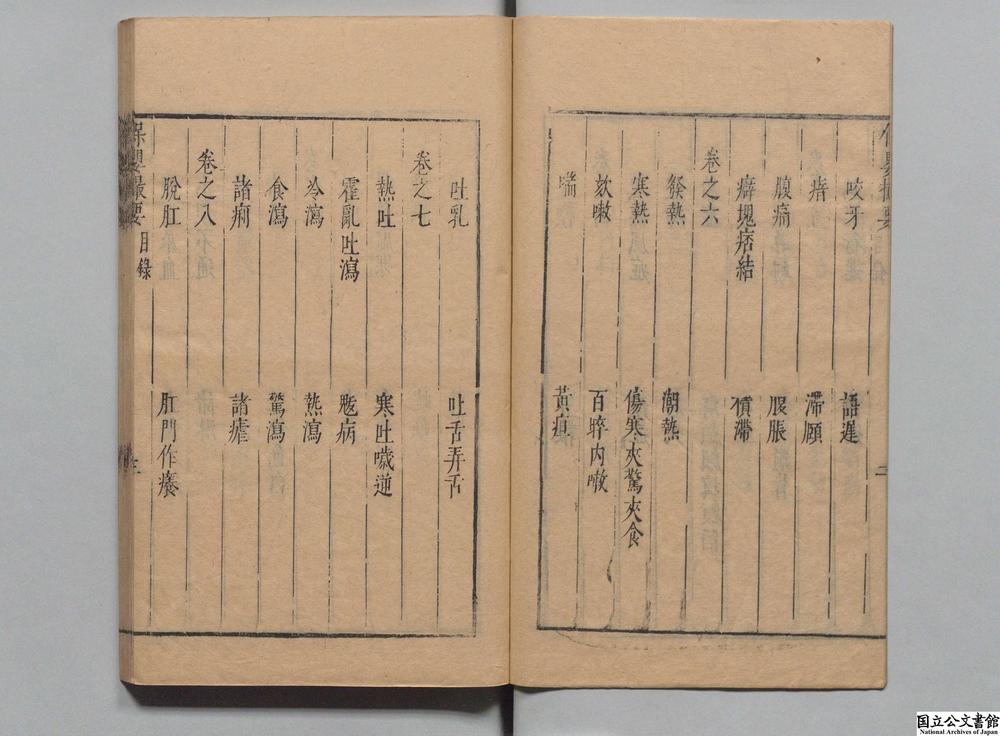 二
咬牙　語遲
瘖　滯頤
腹痛　腹脹
癖塊痞結　積滯
卷之六
發熱　潮熱
寒熱　傷寒夾驚夾食
欬嗽　百晬內嗽
喘　黃疸
吐乳　吐舌弄舌
卷之七
熱吐　寒吐噦逆
霍亂吐瀉　魃病
冷瀉　熱瀉
食瀉　驚瀉
諸痢　諸瘧
卷之八
脫肛　肛門作癢
保嬰撮要　目錄　三
国立公文書館
National Archives of Japan